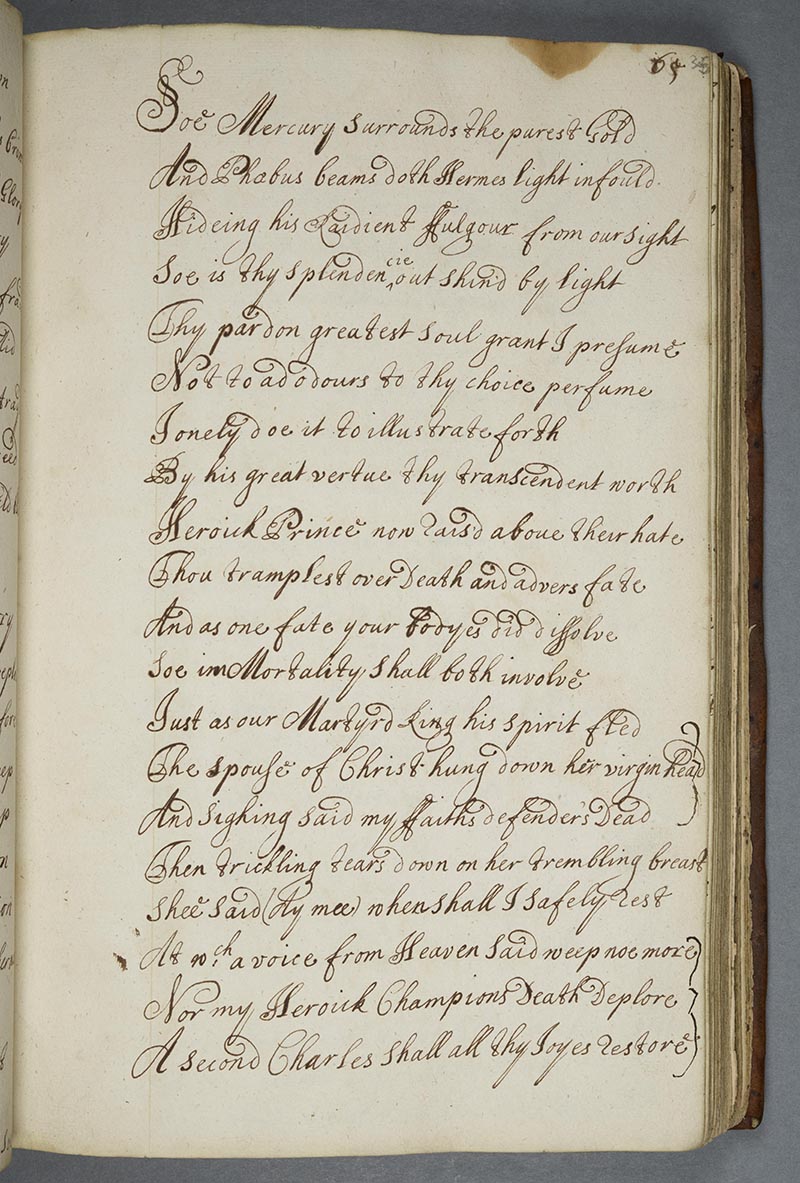 65 35
Soe Mercury surrounds the purest Gold
And Phœbus beams doth Hermes light infould.
Hideing his Raidient ffulgour from our sight
Soe is thy splenden^cie out shin'd by light
Thy pardon greatest soul grant I presume
Not to ad odours to thy choice perfume
I onely doe it to illustrate forth
By his great vertue thy transcendent worth
Heroick Prince now rais'd aboue their hate
Thou tramplest over Death and advers fate
And as one fate your bodyes did dissolve
Soe imMortality shall both involve
Just as our Martyrd King his spirit fled
The spouse of Christ hung down her virgin head
And sighing said my ffaiths defender's Dead
Then trickling tears down on her trembling breast
Shee said (Ay mee) when shall I safely rest
At wch a voice from Heaven said weep noe more
Nor my Heroick Champions Death Deplore
A second Charles shall all thy Joyes restore